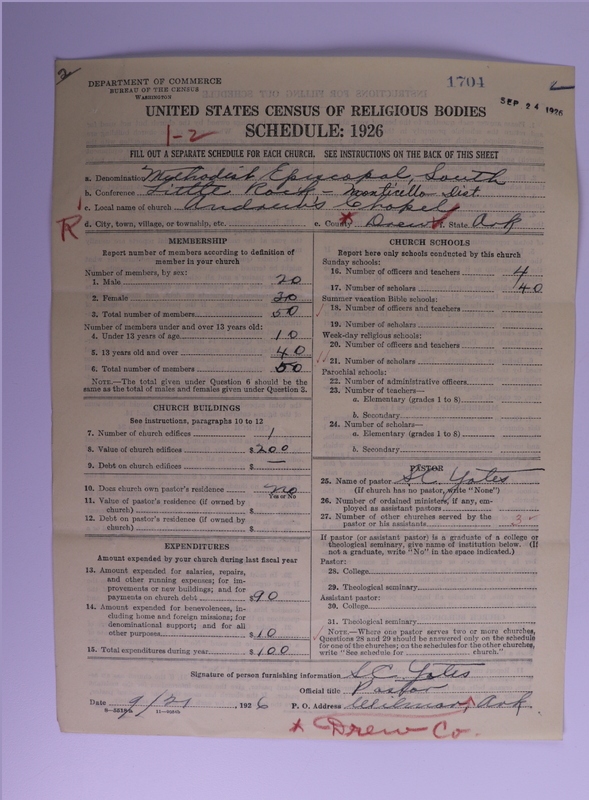 2
DEPARTMENT OF COMMERCE
BUREAU OF THE CENSUS
WASHINGTON
1704
SEP 24 1926
UNITED STATES CENSUS OF RELIGIOUS BODIES
1-2
SCHEDULE: 1926
FILL OUT A SEPARATE SCHEDULE FOR EACH CHURCH. SEE INSTRUCTIONS ON THE BACK OF THIS SHEET
a. Denomination Methodist Episcopal, South
b. Conference Little Rock - Monticello Dist.
c. Local name of church Andrew's Chapel
R
d. City, town, village, or township, etc. e. County Drew f. State Ark
MEMBERSHIP
Report number of members according to definition of
member in your church
Number of members, by sex:
1. Male 20
2. Female 30
3. Total number of members 50
Number of members under and over 13 years old:
4. Under 13 years of age 10
5. 13 years old and over 40
6. Total number of members 50
NOTE.—The total given under Question 6 should be the
same as the total of males and females given under Question 3.
CHURCH BUILDINGS
See instructions, paragraphs 10 to 12
7. Number of church edifices 1
8. Value of church edifices $ 200
9. Debt on church edifices $ —
10. Does church own pastor's residence no
Yes or No
11. Value of pastor's residence (if owned by
church) $
12. Debt on pastor's residence (if owned by
church) $
EXPENDITURES
Amount expended by your church during last fiscal year
13. Amount expended for salaries, repairs,
and other running expenses; for im-
provements or new buildings; and for
payments on church debt $ 90
14. Amount expended for benevolences, in-
cluding home and foreign missions; for
denominational support; and for all
other purposes $ 10
15. Total expenditures during year $ 100
CHURCH SCHOOLS
Report here only schools conducted by this church
Sunday schools:
16. Number of officers and teachers 4
17. Number of scholars 40
Summer vacation Bible schools:
18. Number of officers and teachers
19. Number of scholars
Week-day religious schools:
20. Number of officers and teachers
21. Number of scholars
Parochial schools:
22. Number of administrative officers
23. Number of teachers—
a. Elementary (grades 1 to 8)
b. Secondary
24. Number of scholars—
a. Elementary (grades 1 to 8)
b. Secondary
PASTOR
25. Name of pastor S.C. Yates
(If church has no pastor, write "None")
26. Number of ordained ministers, if any, em-
ployed as assistant pastors
27. Number of other churches served by the
pastor or his assistants 3
If pastor (or assistant pastor) is a graduate of a college or
theological seminary, give name of institution below. (If
not a graduate, write "No" in the space indicated.)
Pastor:
28. College
29. Theological seminary
Assistant pastor:
30. College
31. Theological seminary
NOTE.—Where one pastor serves two or more churches,
Questions 28 and 29 should be answered only on the schedule
for one of the churches; on the schedules for the other churches,
write "See schedule for church."
Signature of person furnishing information S.C. Yates
Official title Pastor
Date 9/21, 1926 P. O. Address Wilmar, Ark
* Drew Co.